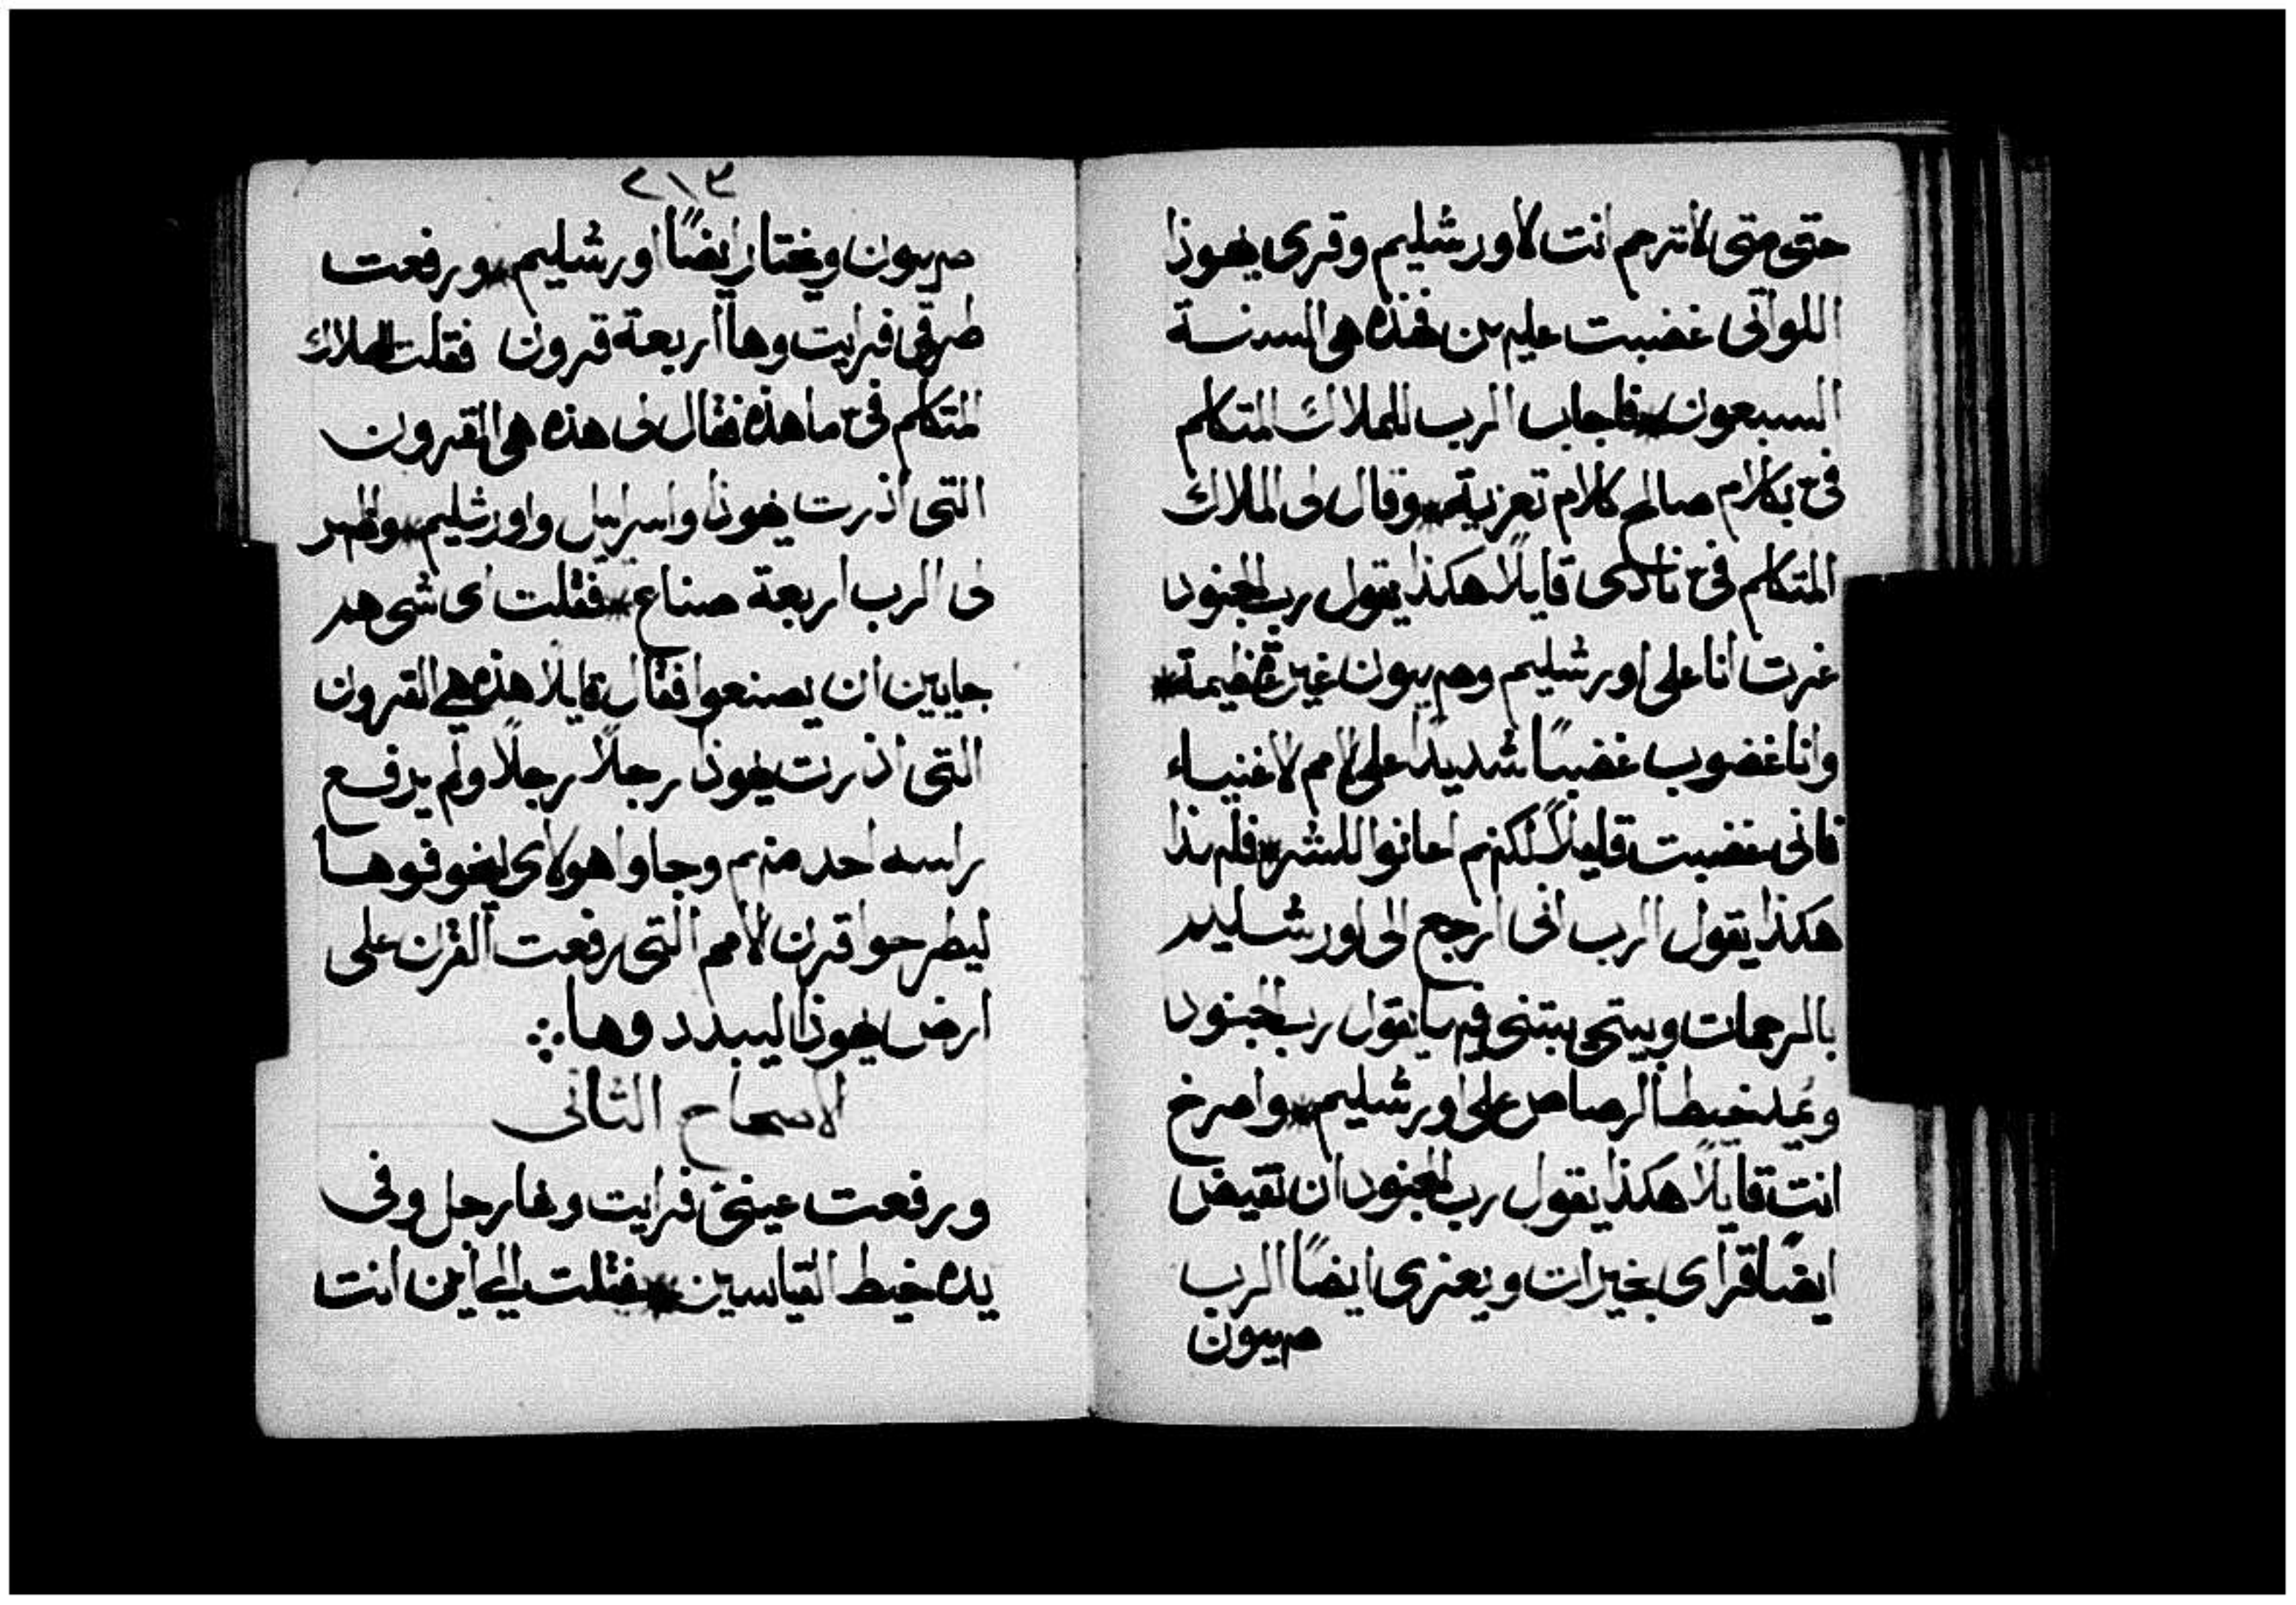 حتى متى لا ترحم انت لاورشليم وقرى يهوذا
اللواتى غضبت عليهن فهذه هى السنة
السبعون * فاجاب الرب للملاك المتكلم
فىّ بكلام صالح كلام تعزية * وقال لى الملاك
المتكلم فىّ نادى قايلًا هكذا يقول رب الجنود
غرت انا على اورشليم وصهيون غيرة عظيمة *
وانا غضوب غضبًا شديدًا على الامم الاغنياء
فانى غضبت قليلًا لكنهم اعانوا للشر * فلهذا
هكذا يقول الرب انى ارجع الى اورشليم
بالرحمات وبيتى يبتنى فيها يقول رب الجنود
ويمد خيط الرصاص على اورشليم * واصرخ
انت قايلًا هكذا يقول رب الجنود ان تفيض
ايضًا قراى بخيرات ويعزى ايضًا الرب
صهيون
٢١٣
صهيون ويختار ايضًا اورشليم * ورفعت
طرفى فرايت وها اربعة قرون فقلت للملاك
المتكلم فىّ ما هذه فقال لى هذه هى القرون
التى اذرت يهوذا واسرايل واورشليم * واظهر
لى الرب اربعة صناع * فقلت اى شى هم
جايين ان يصنعوا فقال قايلًا هذه هى القرون
التى اذرت يهوذا رجلًا رجلًا ولم يرفع
راسه احد منهم وجاوا هولاى ليخوفوها
ليطرحوا قرن الامم التى رفعت القرن على
ارض يهوذا ليبددوها
الاصحاح الثانى
ورفعت عينىّ فرايت وها رجل وفى
يده خيط القياسين * فقلت الى اين انت